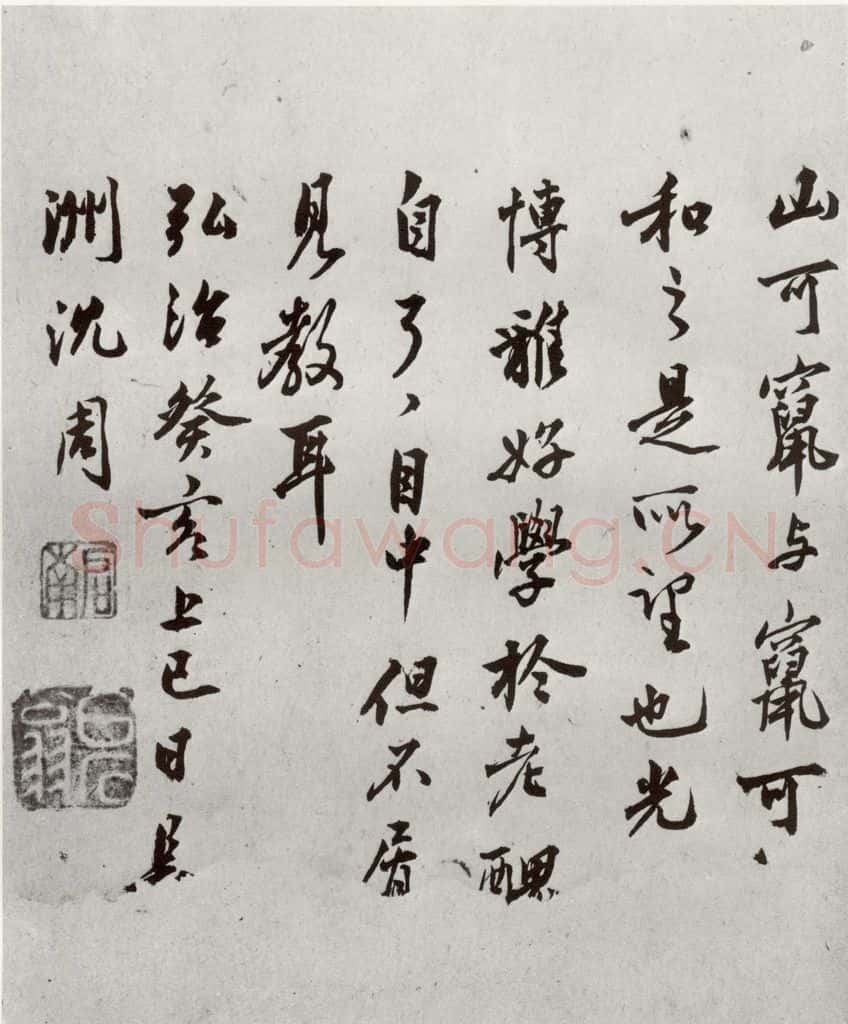 山可竄与竄可、
和之是所望也光
博雅好學於老醜
自了、目中但不屑
見教耳
弘治癸亥上巳日長
洲沈周
啓南
白石翁
Shufawang.CN